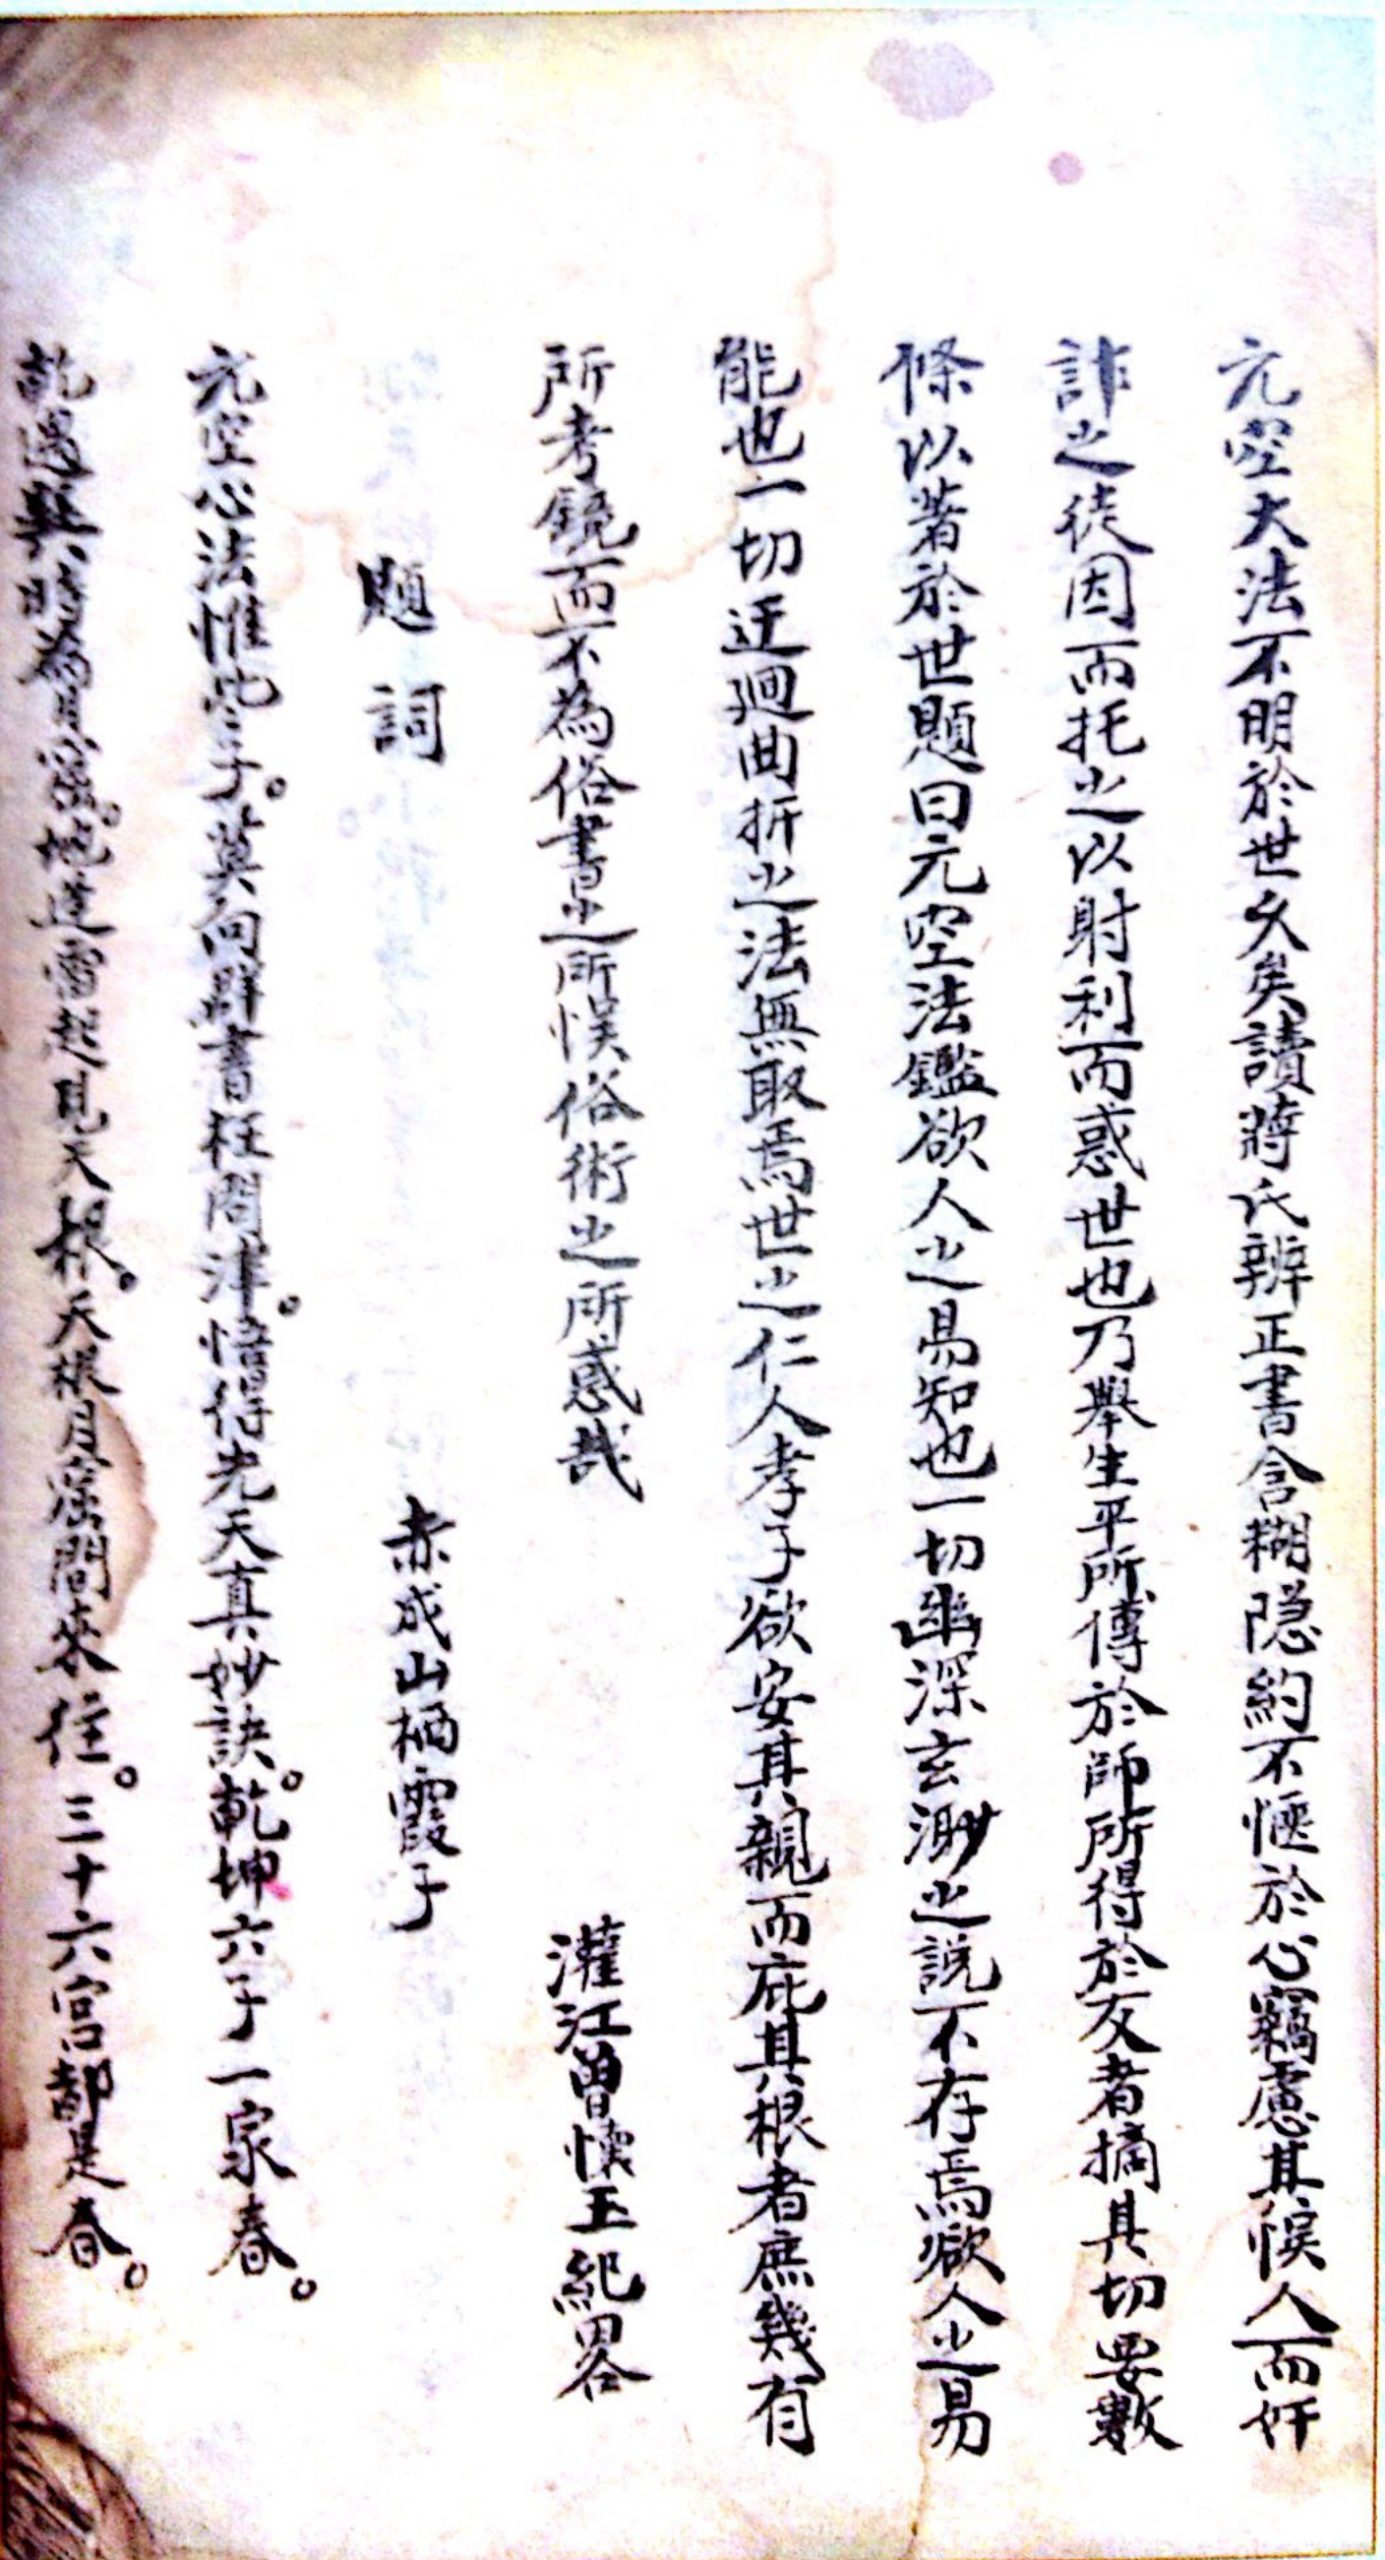 元空大法不明於世久矣讀蔣氏辨正書含糊隐約不愜於心竊慮其悞人而奸
詐之徒因而托之以射利而惑世也乃舉生平所傳於師所得於友者摘其切要數
條以著於世題曰元空法鑑欲人之易知也一切幽深玄渺之説不存焉欲人之易
能也一切迂迴曲折之法無取焉世之仁人孝子欲安其親而庇其根者庶幾有
所考鏡而不為俗書之所悞俗術之所惑哉 灌江曾懷玉紀畧
題詞 赤成山栖霞子
元空心法惟些子。莫向群書枉問津。悟得先天真妙訣。乾坤六子一家春。
乾遇巽時為月窟。地逢雷起見天根。天根月窟間來往。三十六宮都是春。